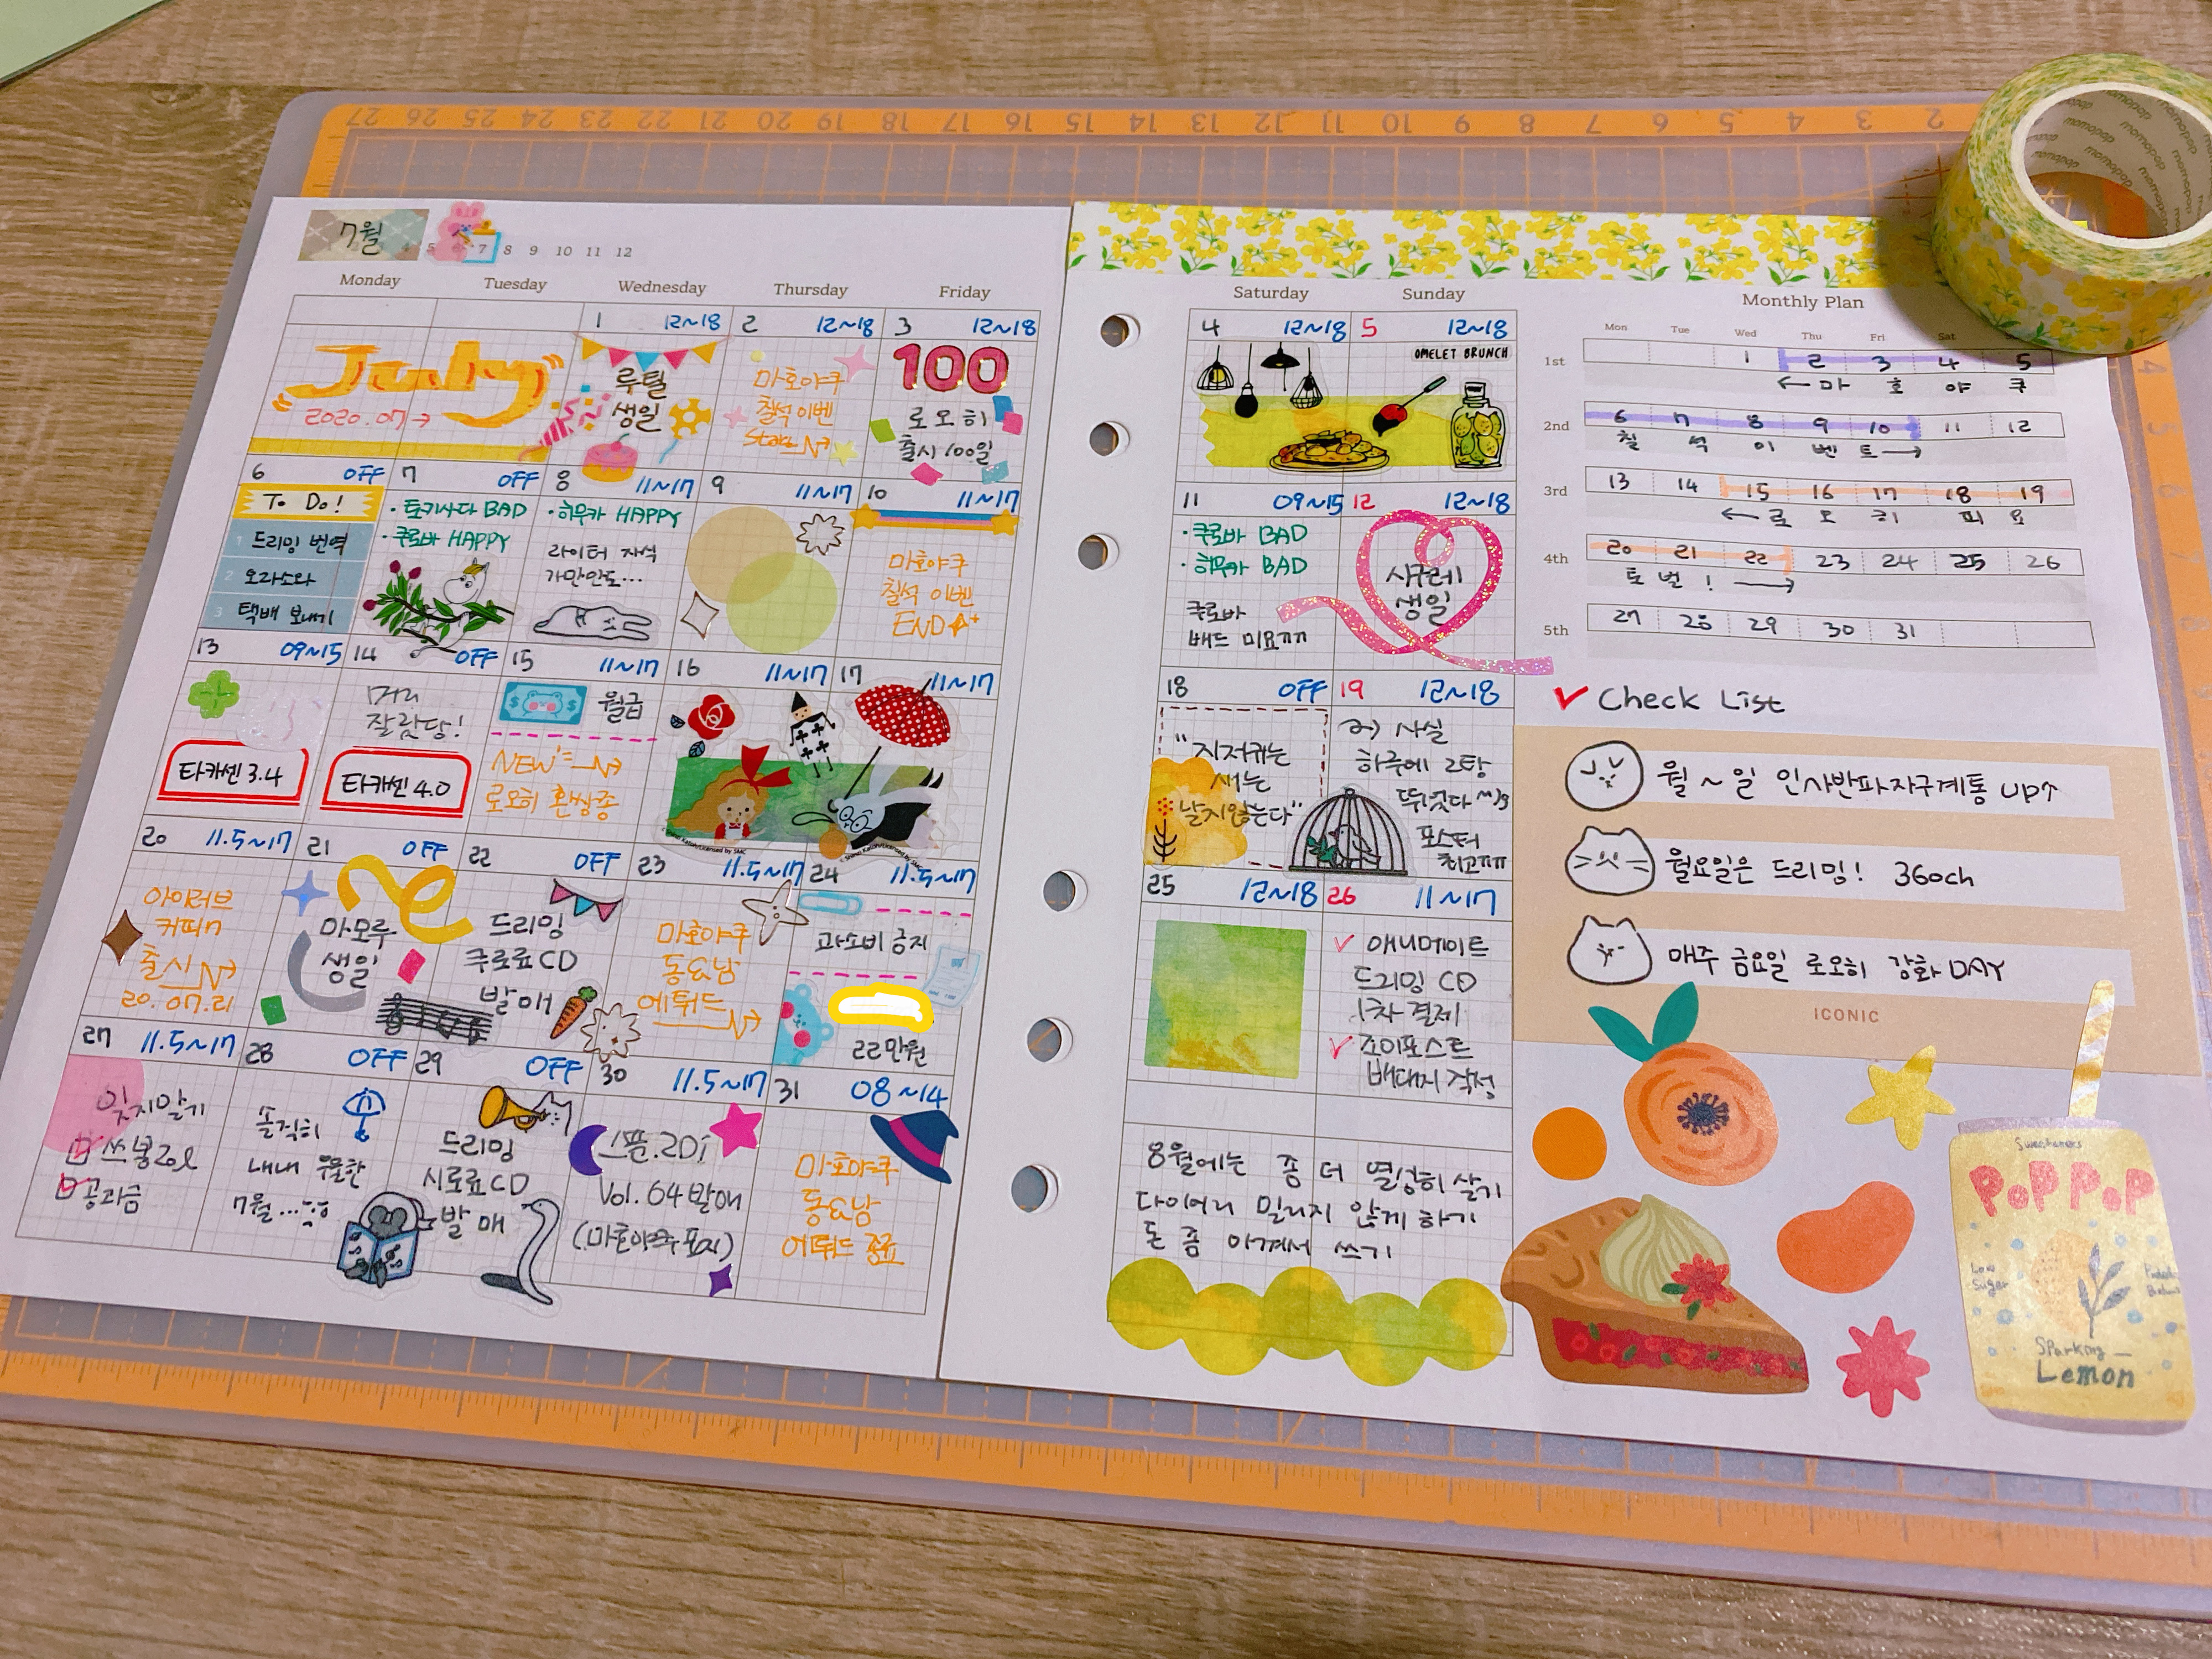 27 26 25 24 23 22 21 20 19 18 17 16 15 14 13 12 11 10 9 8 7 6 5 4 3 2
momopop momopop momopop
7월
4 5 6 7 8 9 10 11 12
Monday Tuesday Wednesday Thursday Friday
1 12~18 2 12~18 3 12~18
July
2020.07→
루틸
생일
마호야쿠
칠석 이벤
Start
100
로오히
출시 100일
6 OFF 7 OFF 8 11~17 9 11~17 10 11~17
To Do!
1 드리밍 번역
2 오라소와
3 택배 보내기
· 토키사다 BAD
· 쿠로바 HAPPY
· 히우카 HAPPY
라이터 자식
가만안도...
마호야쿠
칠석 이벤
END
13 09~15 14 OFF 15 11~17 16 11~17 17 11~17
타카센 3.4
머리
잘랐당!
타카센 4.0
월급
NEW
로오히 환상종
20 11.5~17 21 OFF 22 OFF 23 11.5~17 24 11.5~17
아이러브
커피n
출시
20.07.21
마모루
생일
드리밍
쿠로료CD
발매
마호야쿠
동&남
에튀드
과소비 금지
22만원
27 11.5~17 28 OFF 29 OFF 30 11.5~17 31 08~14
잊지말기
쓰봉20l
공과금
솔직히
내내 우울한
7월...
드리밍
시료료CD
발매
스푼.2Di
Vol. 64 발매
(마호야쿠 표지)
마호야쿠
동&남
에튀드 종료
Saturday Sunday
4 12~18 5 12~18
OMELET BRUNCH
11 09~15 12 12~18
· 쿠로바 BAD
· 히우카 BAD
쿠로바
배드 미요ㅠㅠ
시구레
생일
18 OFF 19 12~18
"지저귀는
새는
날지않는다"
사실
하루에 2탕
뛰었다
포스터
최고ㅠㅠ
25 12~18 26 11~17
애니메이트
드리밍 CD
1차 결제
조이포스트
배대지 작성
8월에는 좀 더 열심히 살기
다이어리 밀리지 않게 하기
돈 좀 아껴서 쓰기
Monthly Plan
Mon Tue Wed Thu Fri Sat
1st 1 2 3 4 5
←마 호 야 쿠
2nd 6 7 8 9 10 11 12
칠 석 이 벤 트→
3rd 13 14 15 16 17 18 19
←로 오 히 피 요
4th 20 21 22 23 24 25 26
토 벌 ! →
5th 27 28 29 30 31
Check List
월~일 인사반파자구계통 UP↑
월요일은 드리밍! 360ch
매주 금요일 로오히 강화 DAY
ICONIC
POP POP
Low
Sugar
Sparking
Lemon